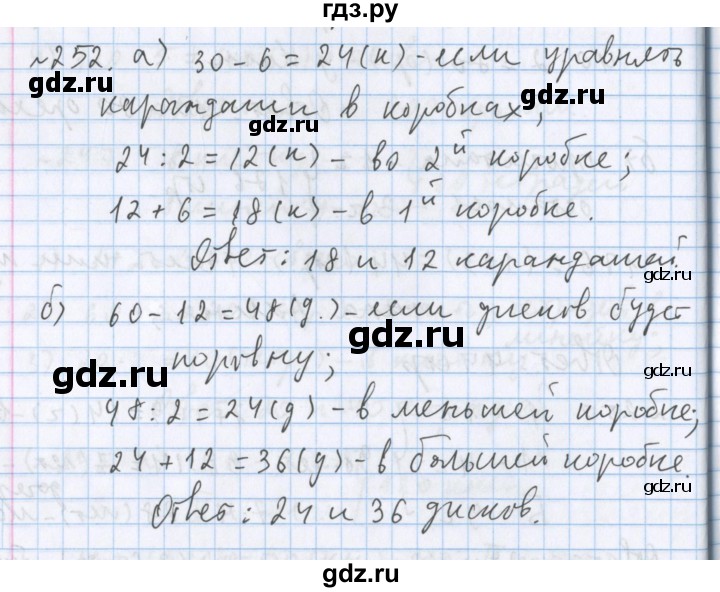 гдз.ру
№252. а) 30 – 6 = 24 (к) – если уравнять
карандаши в коробках;
24 : 2 = 12 (к) – во 2й коробке;
12 + 6 = 18 (к) – в 1й коробке.
Ответ: 18 и 12 карандашей.
б) 60 – 12 = 48 (д.) – если дисков будет
поровну;
48 : 2 = 24 (д) – в меньшей коробке;
24 + 12 = 36 (д) – в большей коробке.
Ответ: 24 и 36 дисков.
gdz.ru
gdz.ru
gdz.ru
gdz.ru
gdz.ru
gdz.ru
gdz.ru
gdz.ru
gdz.ru
gdz.ru